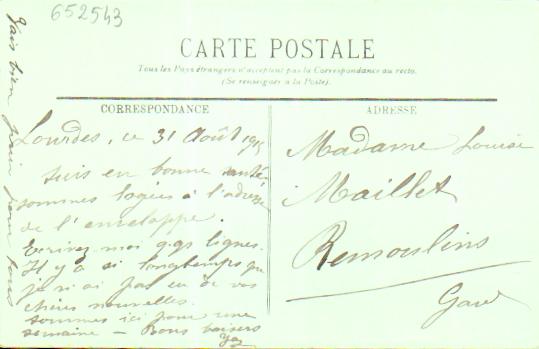 652543
CARTE POSTALE
Tous les Pays étrangers n'acceptent pas la Correspondance au recto.
(Se renseigner à la Poste).
CORRESPONDANCE
Lourdes, ce 31 Août
suis en bonne santé
sommes logées à l'adresse
de l'enveloppe.
Ecrivez-moi qqs lignes.
Il y a si longtemps que
je n'ai pas eu de vos
chères nouvelles.
sommes ici pour une
semaine — Bons baisers
Vais bien prier pour vous
ADRESSE
Madame Louise
Maillet
Remoulins
Gard